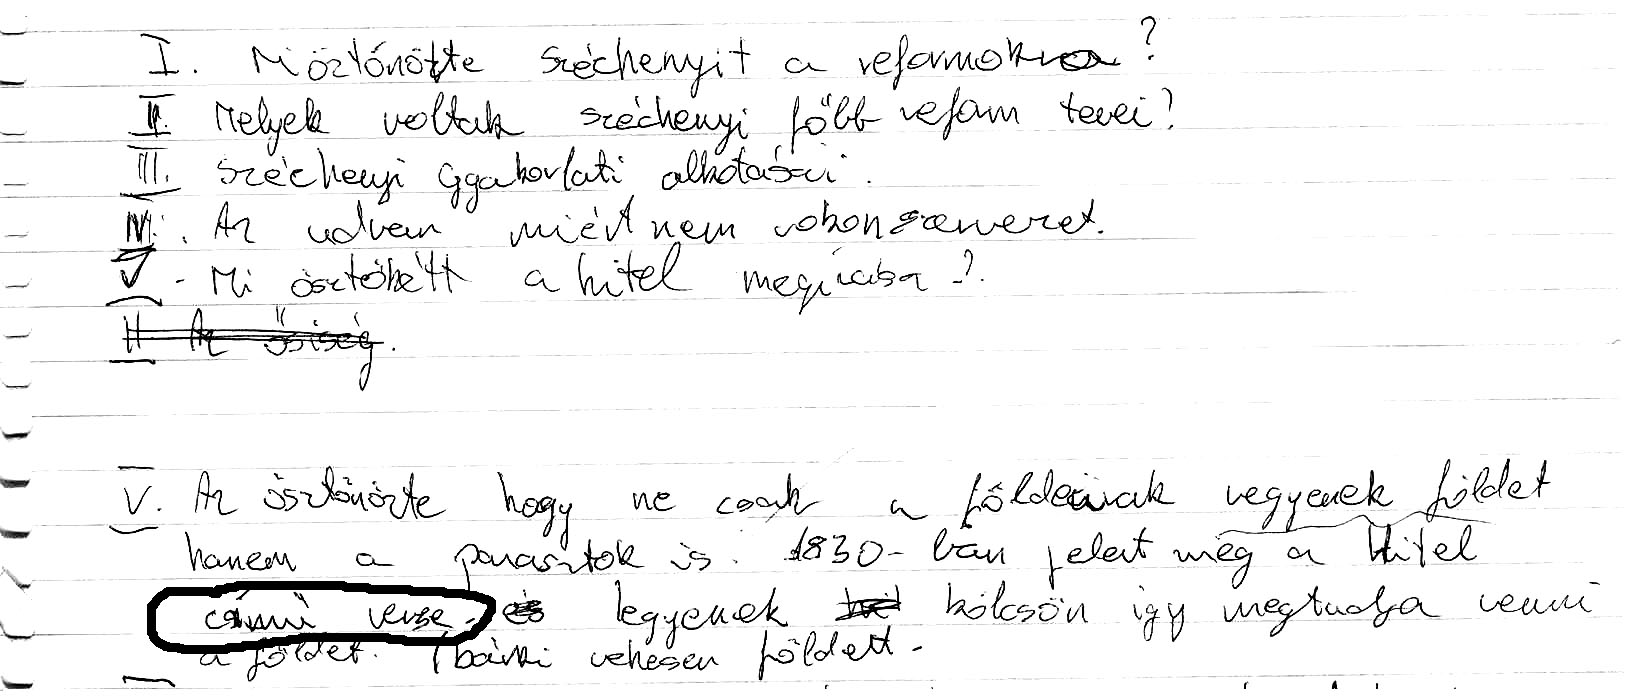 I. Miösztönözte széchenyit a reformokra?
II. Melyek voltak széchenyi főbb reform tervei?
III. Széchenyi gyakorlati alkotásai.
IV. Az udvar miért nem rokonszenvezet.
V. Mi ösztökélt a hitel megírásba?
II Az ősiség.
V. Az ösztönözte hogy ne csak a vegyenek földet
hanem a parasztok is. 1830-ban jelent meg a Hitel
című verse. és legyenek kölcsön így megtudja venni
a földet. (bárki vehesen földett.